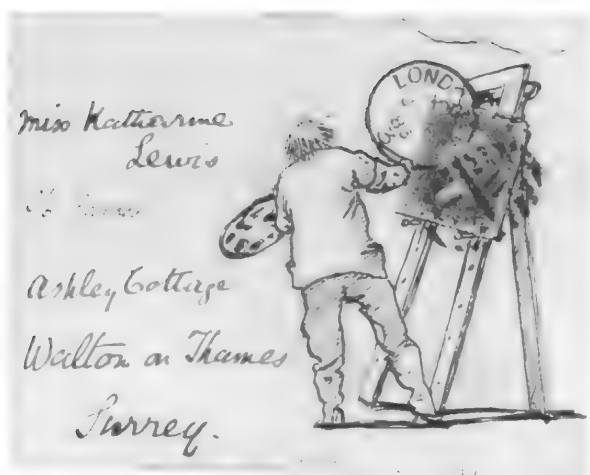 Miss Katharine
Lewis
Ashley Cottage
Walton on Thames
Surrey.
LOND